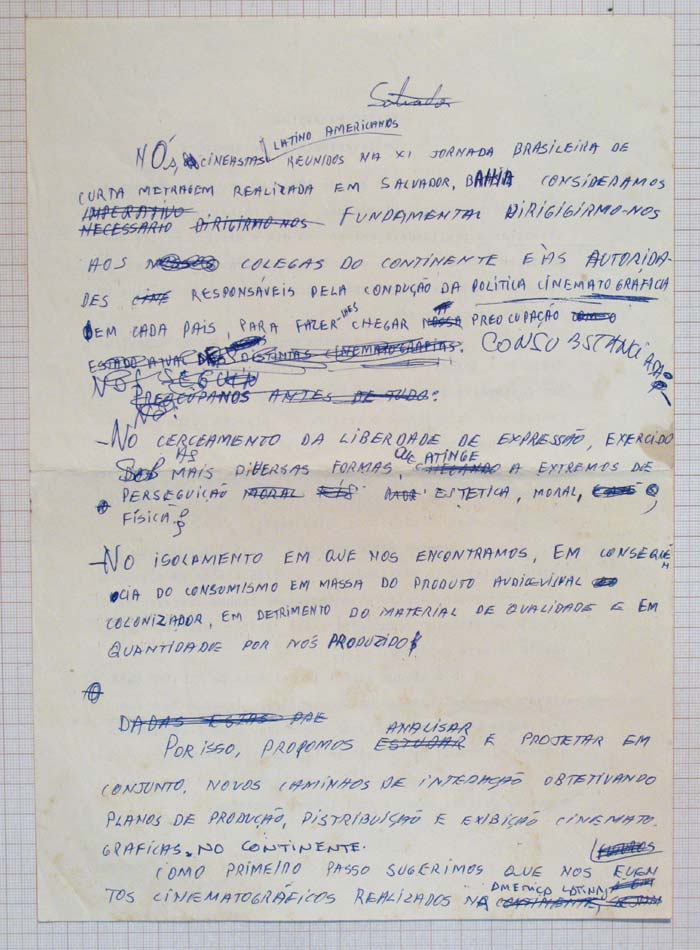 Salvador
LATINO AMERICANOS
NÓS, CINEASTAS REUNIDOS NA XI JORNADA BRASILEIRA DE
CURTA METRAGEM REALIZADA EM SALVADOR, BAHIA CONSIDERAMOS
IMPERATIVO
NECESSÁRIO DIRIGIRMO-NOS FUNDAMENTAL DIRIGIGIRMO-NOS
AOS NOSSOS COLEGAS DO CONTINENTE E ÀS AUTORIDA-
DES CINE RESPONSÁVEIS PELA CONDUÇÃO DA POLÍTICA CINEMATOGRÁFICA
EM CADA PAÍS, PARA FAZER-LHES CHEGAR NOSSA A PREOCUPAÇÃO COM O
ESTADO ATUAL DISTINTAS CINEMATOGRAFIAS. CONSUBSTANCIADA
NOS SEGUIN
PREOCUPANOS ANTES DE TUDO:
NO:
-NO CERCEAMENTO DA LIBERDADE DE EXPRESSÃO, EXERCIDO
SOB AS MAIS DIVERSAS FORMAS, QUE ATINGE CHEGANDO A EXTREMOS DE
PERSEGUIÇÃO MORAL ESTÉTICA, MORAL,
FÍSICA
-NO ISOLAMENTO EM QUE NOS ENCONTRAMOS, EM CONSEQUÊN
CIA DO CONSUMISMO EM MASSA DO PRODUTO AUDIOVISUAL
COLONIZADOR, EM DETRIMENTO DO MATERIAL DE QUALIDADE E EM
QUANTIDADE POR NÓS PRODUZIDO
DADAS ESTAS
ANALISAR
POR ISSO, PROPOMOS ESTUDAR E PROJETAR EM
CONJUNTO, NOVOS CAMINHOS DE INTEGRAÇÃO OBJETIVANDO
PLANOS DE PRODUÇÃO, DISTRIBUIÇÃO E EXIBIÇÃO CINEMATO-
GRÁFICAS, NO CONTINENTE.
FUTUROS
COMO PRIMEIRO PASSO SUGERIMOS QUE NOS EVEN
AMÉRICA LATINA,
TOS CINEMATOGRÁFICOS REALIZADOS NA CONTINENTE, SEJAM